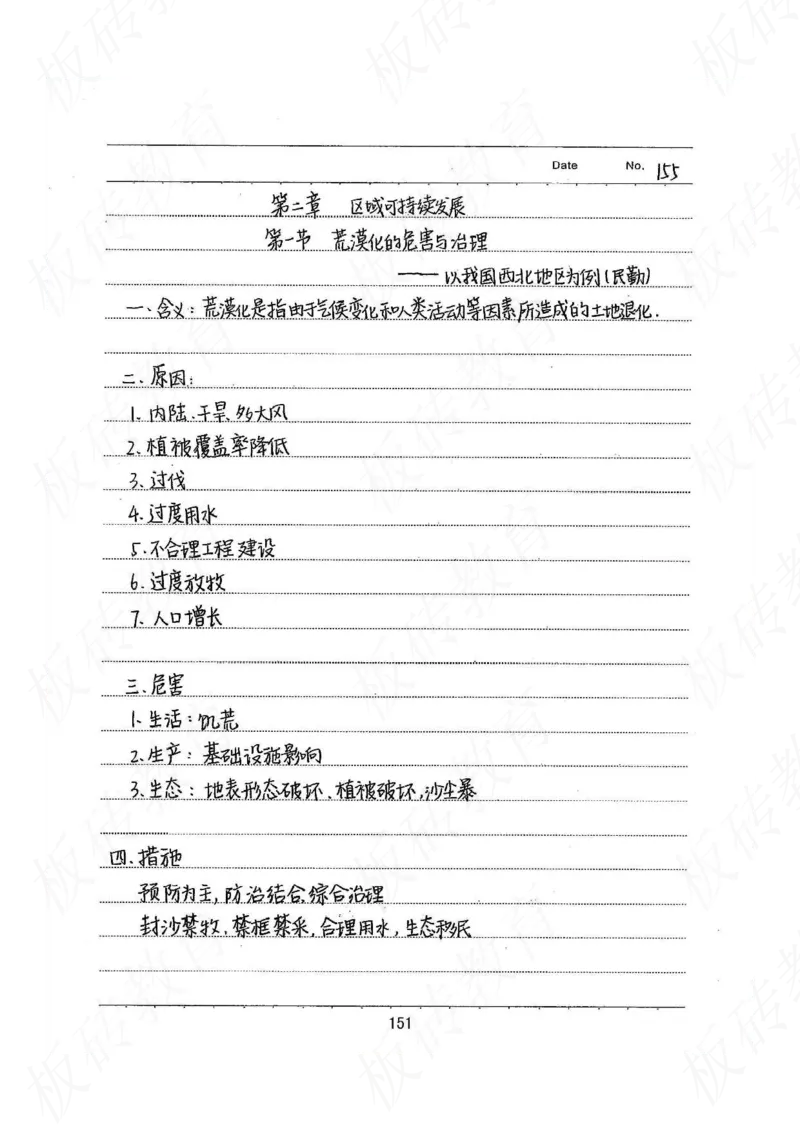 Date No. 155
第二章 区域可持续发展
第一节 荒漠化的危害与治理
——以我国西北地区为例(民勤)
一、含义:荒漠化是指由于气候变化和人类活动等因素所造成的土地退化.
二、原因:
1、内陆、干旱、多大风
2、植被覆盖率降低
3、过伐
4、过度用水
5、不合理工程建设
6、过度放牧
7、人口增长
三、危害
1、生活:饥荒
2、生产:基础设施影响
3、生态:地表形态破坏、植被破坏,沙尘暴
四、措施
预防为主,防治结合,综合治理
封沙禁牧,禁框禁采,合理用水,生态移民
151
板砖教育